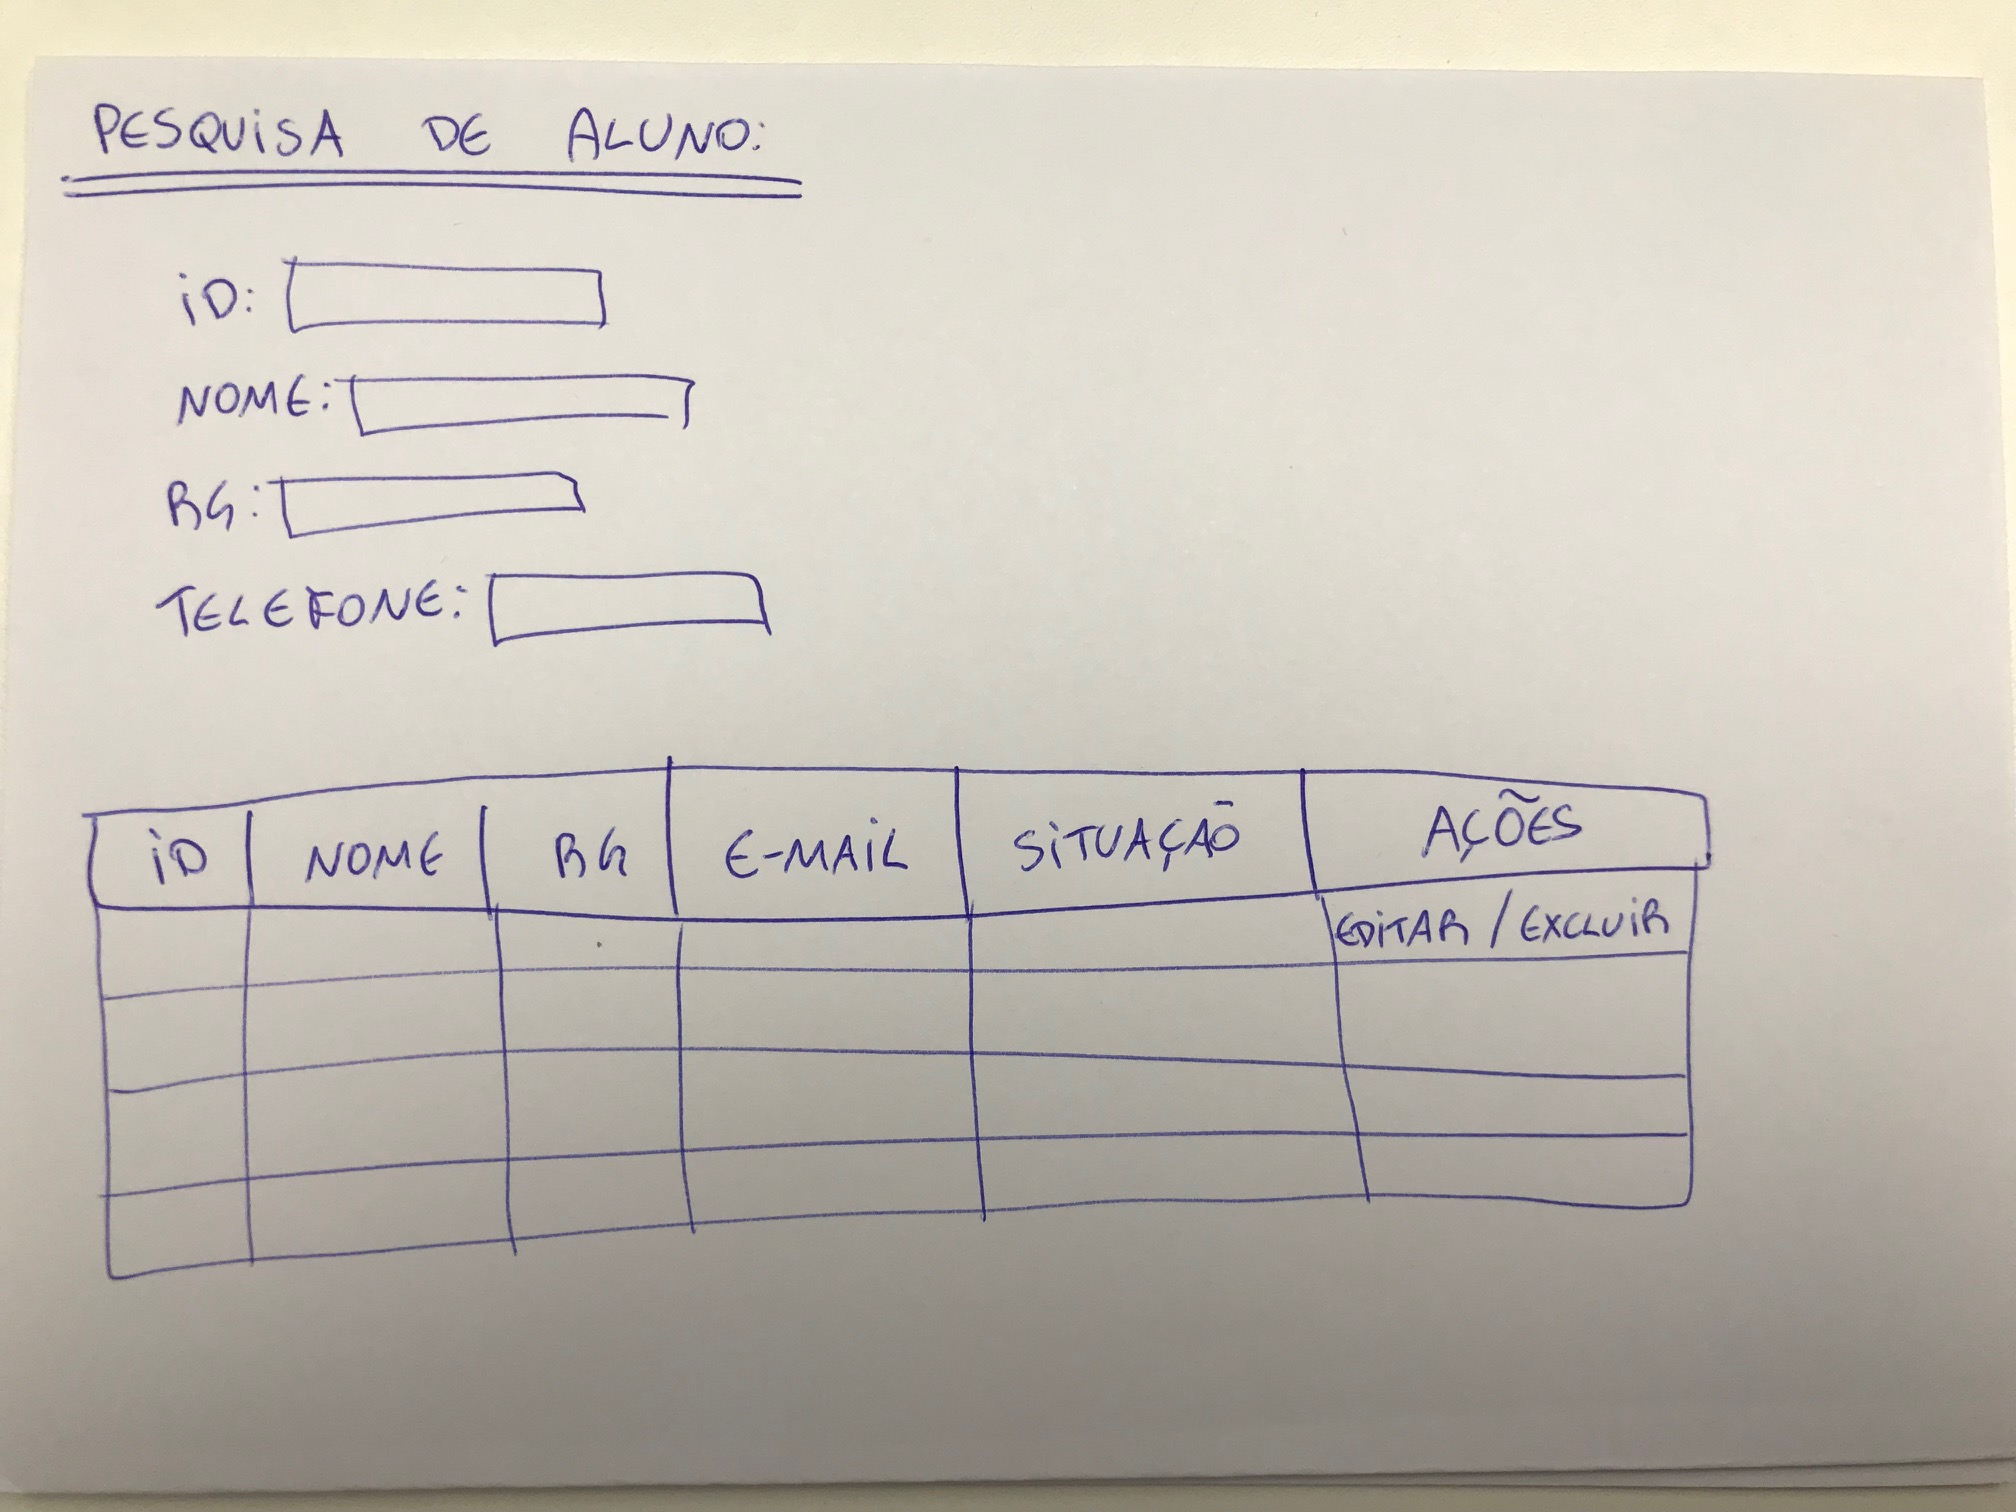 PESQUISA DE ALUNO:
ID:
NOME:
RG:
TELEFONE:
ID NOME RG E-MAIL SITUAÇÃO AÇÕES
EDITAR / EXCLUIR